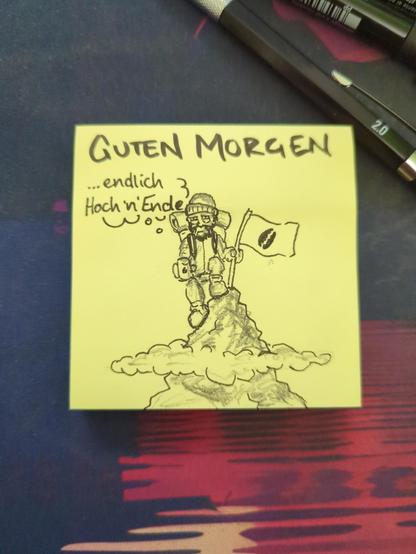 GUTEN MORGEN
...endlich
Hoch'n'Ende
2.0